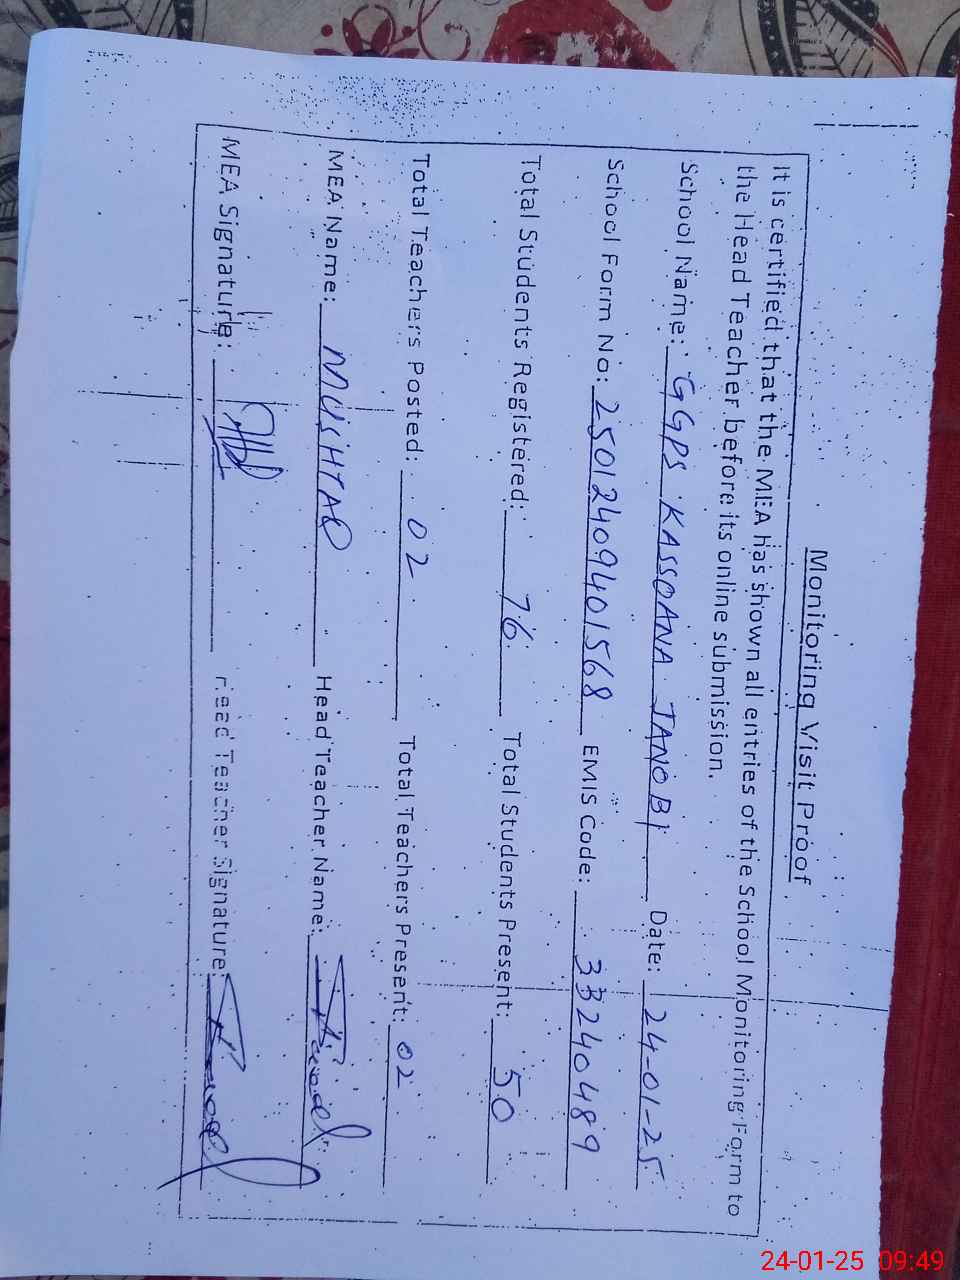 Monitoring Visit Proof
It is certified that the MEA has shown all entries of the School Monitoring Form to
the Head Teacher before its online submission.
School Name: GGPS KASSOANA JANOBI Date: 24-01-25
School Form No: 25012409401568 EMIS Code: 33240489
Total Students Registered: 76 Total Students Present: 50
Total Teachers Posted: 02 Total Teachers Present: 02
MEA Name: MUSHTAQ Head Teacher Name:
MEA Signature: Head Teacher Signature:
24-01-25 09:49